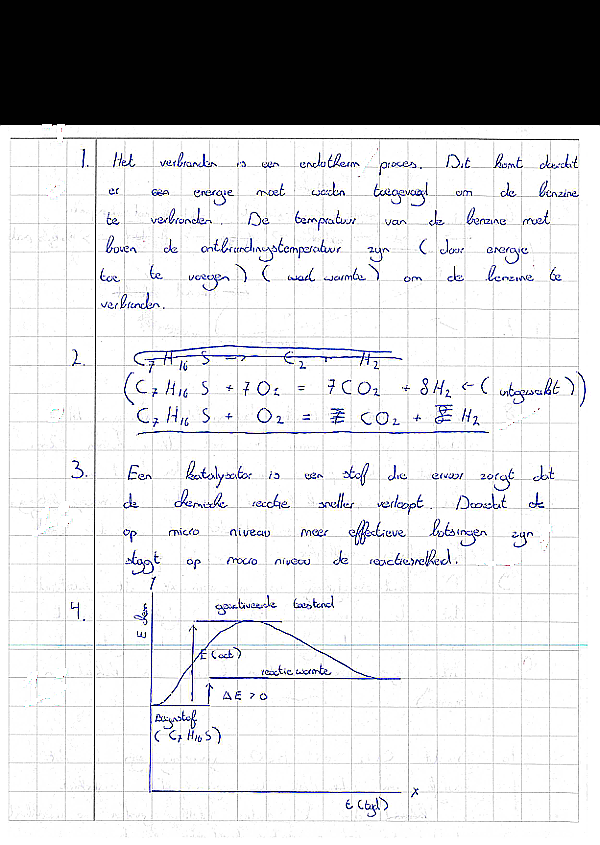 1. Het verbranden is een endotherm proces. Dit komt doordat
er een energie moet worden toegevoegd om de benzine
te verbranden. De tempratuur van de benzine moet
boven de ontbrandingstemperatuur zijn (door energie
toe te voegen) (werk warmte) om de benzine te
verbranden.
2. C7 H16 S -> C2 + H2
(C7 H16 S + 7 O2 = 7 CO2 + 8 H2 <- (uitgewerkt))
C7 H16 S + O2 = CO2 + H2
3. Een katalysator is een stof die ervoor zorgt dat
de chemische reactie sneller verloopt. Doordat de
op micro niveau meer effectieve botsingen zijn
stijgt op macro niveau de reactiesnelheid.
4. E chem
geactiveerde toestand
E (act)
reactie warmte
ΔE > 0
Beginstof
(C7 H16 S)
x
t (tijd)